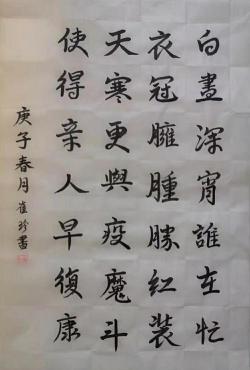 白晝深宵誰在忙
衣冠臃腫勝紅裝
天寒更與疫魔斗
使得亲人早復康
庚子春月崔珍書